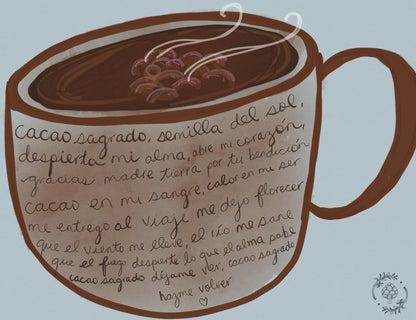 cacao sagrado, semilla del sol,
despierta mi alma, abre mi corazón,
gracias madre tierra por tu bendición
cacao en mi sangre, calor en mi ser
me entrego al viaje me dejo florecer
que el viento me lleve, el río me sane
que el fuego despierte lo que el alma sabe
cacao sagrado déjame ver, cacao sagrado
hazme volver